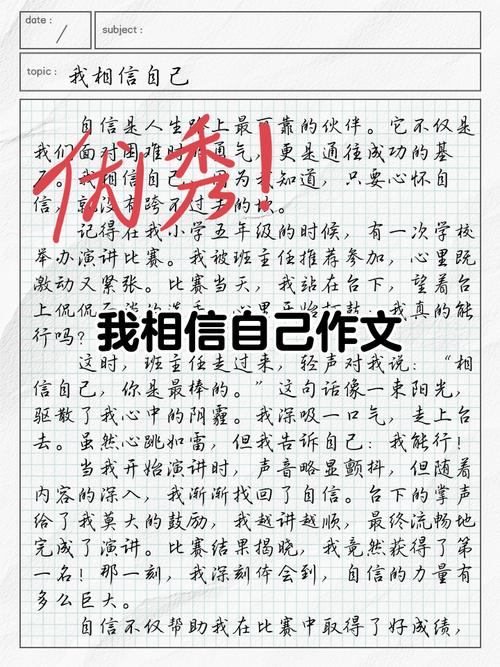 date :
subject :
topic : 我相信自己
自信是人生路上最可靠的伙伴。它不仅是
我们面对困难时的勇气，更是通往成功的基
。我相信自己，因为我知道，只要心怀自
信，就没有跨不过去的坎。
优秀！
记得在我小学五年级的时候，有一次学校
举办演讲比赛。我被班主任推荐参加，心里既
激动又紧张。比赛当天，我站在台下，望着台
上侃侃
我真的能
行吗？
我相信自己作文
这时，班主任走过来，轻声对我说：“相
信自己，你是最棒的。”这句话像一束阳光，
驱散了我心中的阴霾。我深吸一口气，走上台
去。虽然心跳如雷，但我告诉自己：我能行！
当我开始演讲时，声音略显颤抖，但随着
内容的深入，我渐渐找回了自信。台下的掌声
给了我莫大的鼓励，我越讲越顺，最终流畅地
完成了演讲。比赛结果揭晓，我竟然获得了第
一名！那一刻，我深刻体会到，自信的力量有
多么巨大。
自信不仅帮助我在比赛中取得了好成绩，